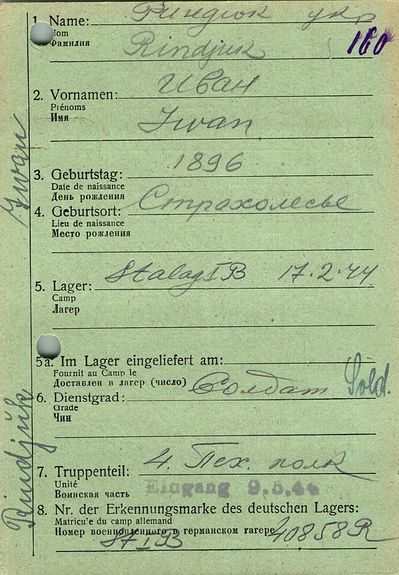 1. Name: Риндюк укр
Nom
Фамилия
Rindjuk
160
Иван
2. Vornamen:
Prénoms
Имя
Iwan
1896
3. Geburtstag:
Date de naissance
День рождения
Страхолесье
4. Geburtsort:
Lieu de naissance
Место рождения
Stalag I B 17.2.44
5. Lager:
Camp
Лагер
5a. Im Lager eingeliefert am:
Fournit au Camp le
Доставлен в лагер (число)
Солдат Sold.
6. Dienstgrad:
Grade
Чин
4. Пех. полк
7. Truppenteil:
Unité
Воинская часть
Eingang 9.5.44
8. Nr. der Erkennungsmarke des deutschen Lagers:
Matricu'e du camp allemand
Номер военнопленного в германском лагере
St I B 40858 R
Rindjuk Iwan